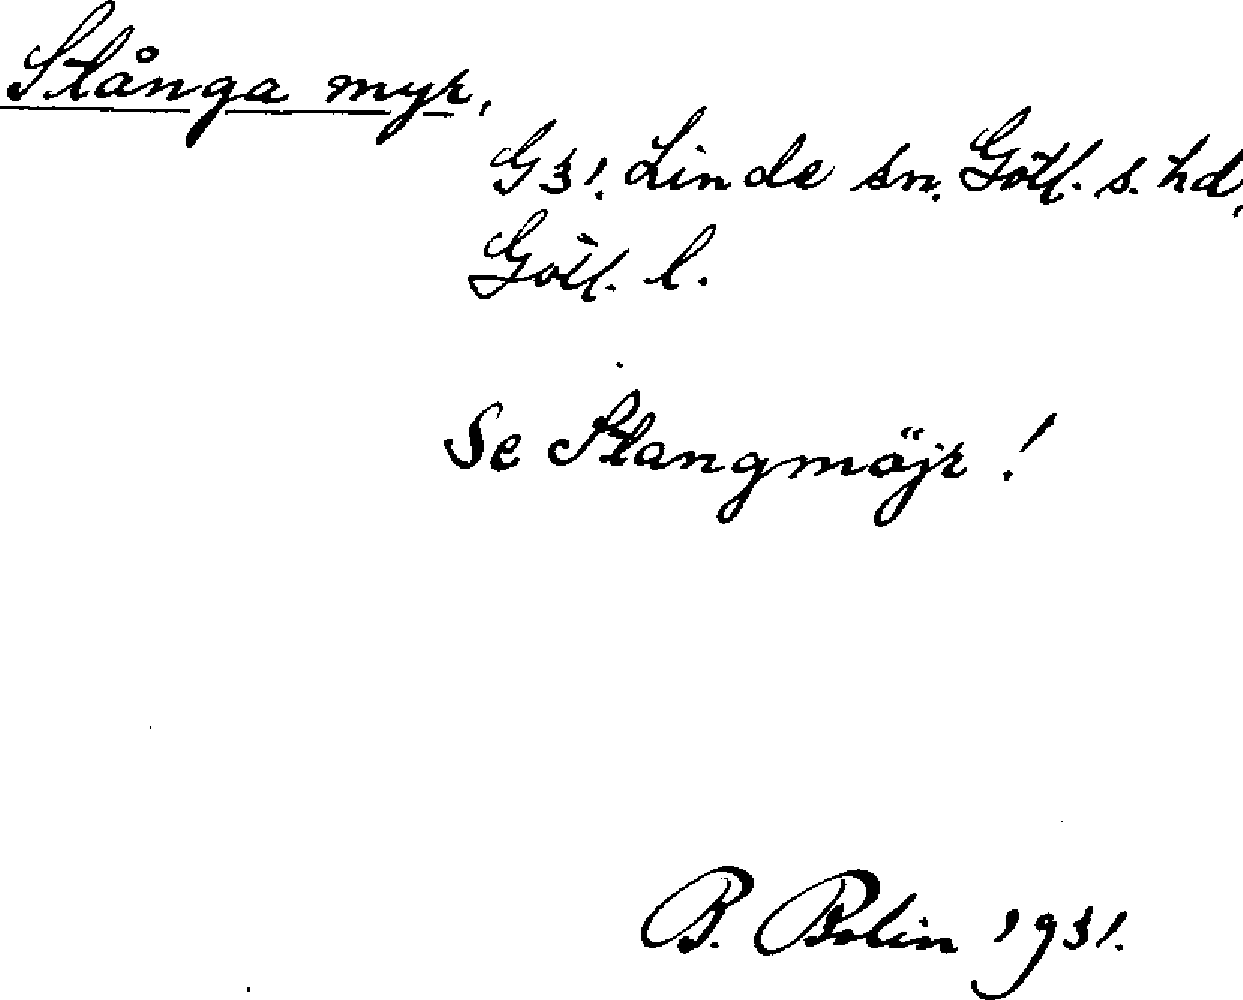 Stånga myr,
G31. Linde sn. Götl. s. hd,
Götl. l.
Se Stangmöjr!
B. Bolin 1931.